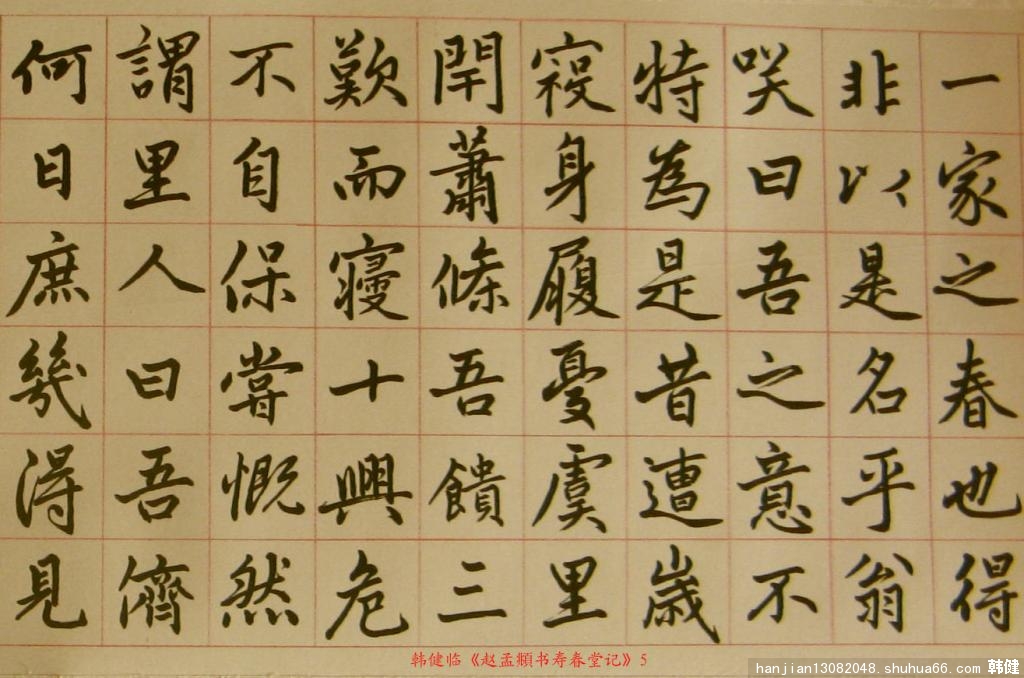 一家之春也得
非以是名乎翁
咲曰吾之意不
特為是昔遭歲
身履憂虞里
閈蕭條吾饋三
歎而寢十興危
不自保嘗慨然
謂里人曰吾儕
何日庶幾得見
韩健临《赵孟頫书寿春堂记》5
hanjian13082048. shuhua66. com 韩健